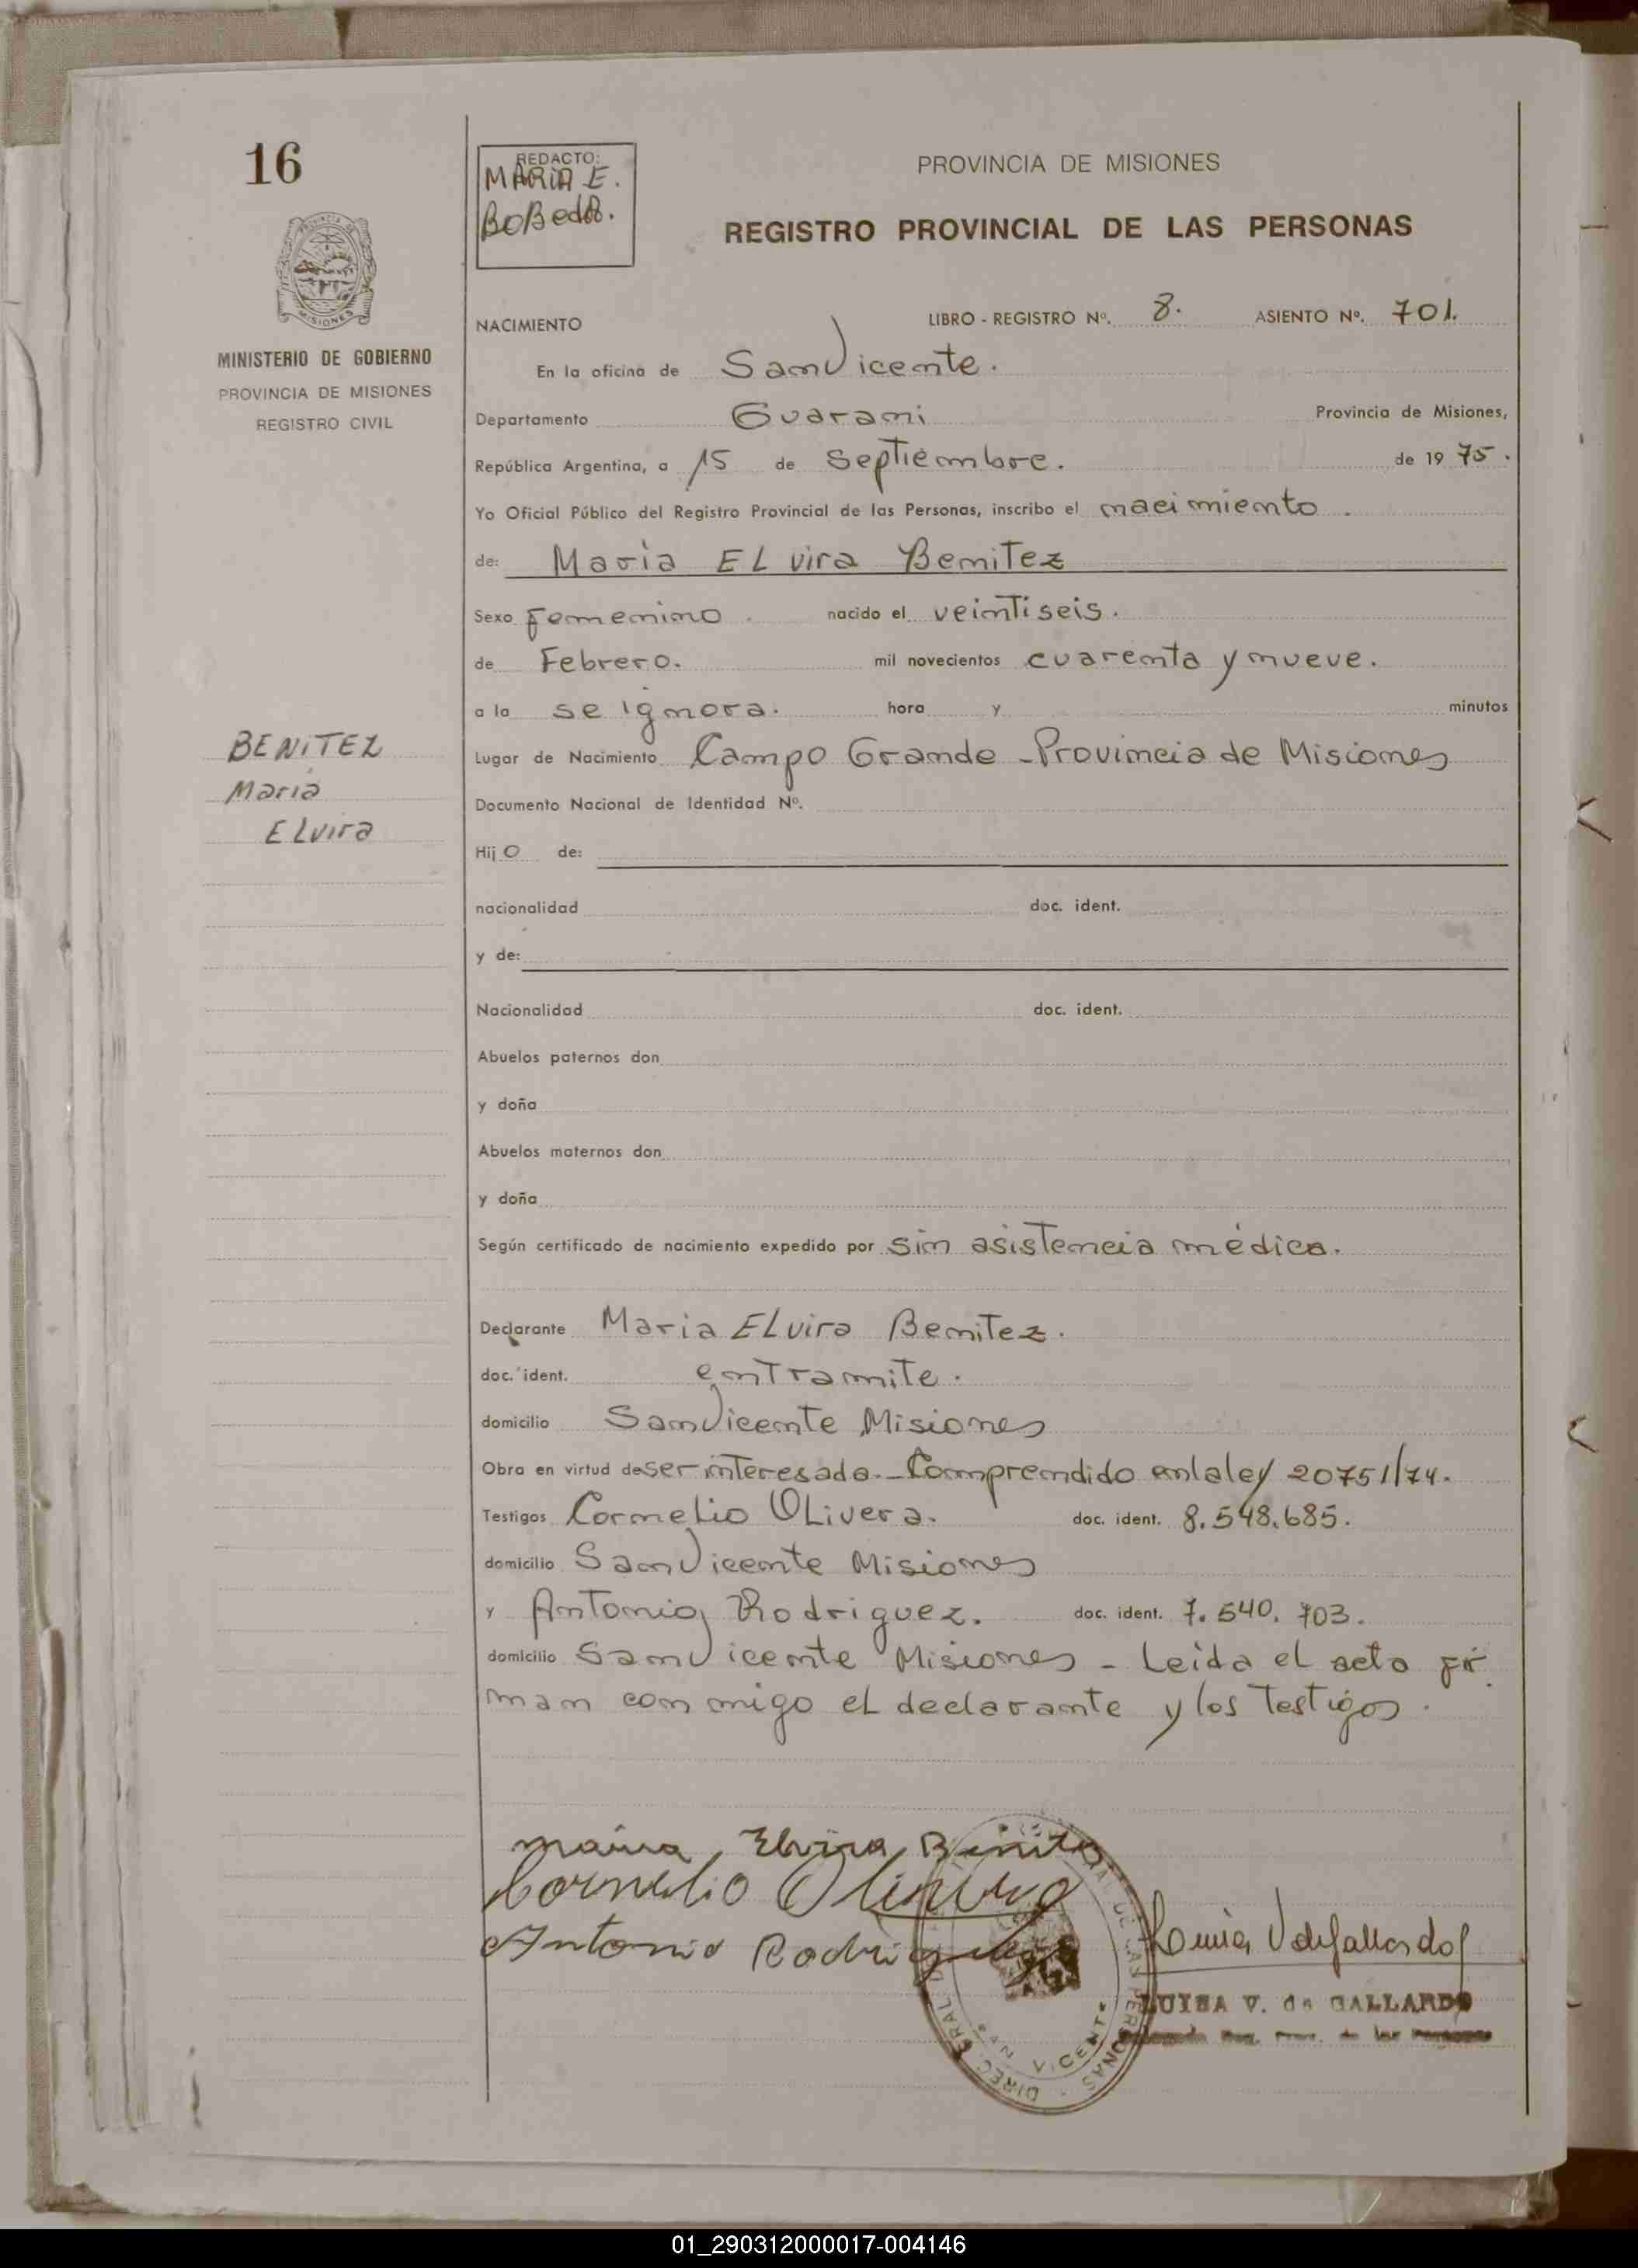 16
REDACTO:
MARIA E.
BoBedA.
PROVINCIA DE MISIONES
REGISTRO PROVINCIAL DE LAS PERSONAS
MISIONES
MINISTERIO DE GOBIERNO
PROVINCIA DE MISIONES
REGISTRO CIVIL
NACIMIENTO LIBRO - REGISTRO Nº. 8. ASIENTO Nº. 701.
En la oficina de San Vicente.
Departamento Guarani Provincia de Misiones,
República Argentina, a 15 de Septiembre. de 19 75.
Yo Oficial Público del Registro Provincial de las Personas, inscribo el nacimiento.
de: Maria ELvira Benitez
Sexo femenino. nacido el veintiseis.
de Febrero. mil novecientos cuarenta y nueve.
a la se ignora. hora y minutos
BENITEZ
Maria
ELvira
Lugar de Nacimiento Campo Grande - Provincia de Misiones
Documento Nacional de Identidad Nº.
Hijo de:
nacionalidad doc. ident.
y de:
Nacionalidad doc. ident.
Abuelos paternos don
y doña
Abuelos maternos don
y doña
Según certificado de nacimiento expedido por sin asistencia médica.
Declarante Maria ELvira Benitez.
doc. ident. en tramite.
domicilio San Vicente Misiones
Obra en virtud de ser interesada. - Comprendido en la ley 20751/74.
Testigos Cornelio OLivera. doc. ident. 8.548.685.
domicilio San Vicente Misiones
y Antonio Rodriguez. doc. ident. 7.540.703.
domicilio San Vicente Misiones - Leida el acta fir
man con migo el declarante y los Testigos.
Maria Elvira Benitez
Cornelio Olivera
Antonio Rodriguez
LUISA V. de GALLARDO
Reg. Prov. de las Personas
SAN VICENTE
01_290312000017-004146